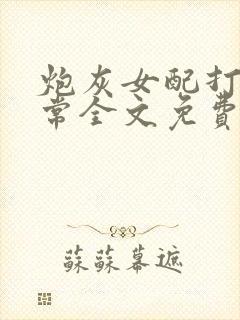 炮灰女配打
常全文免費
蘇蘇幕遮